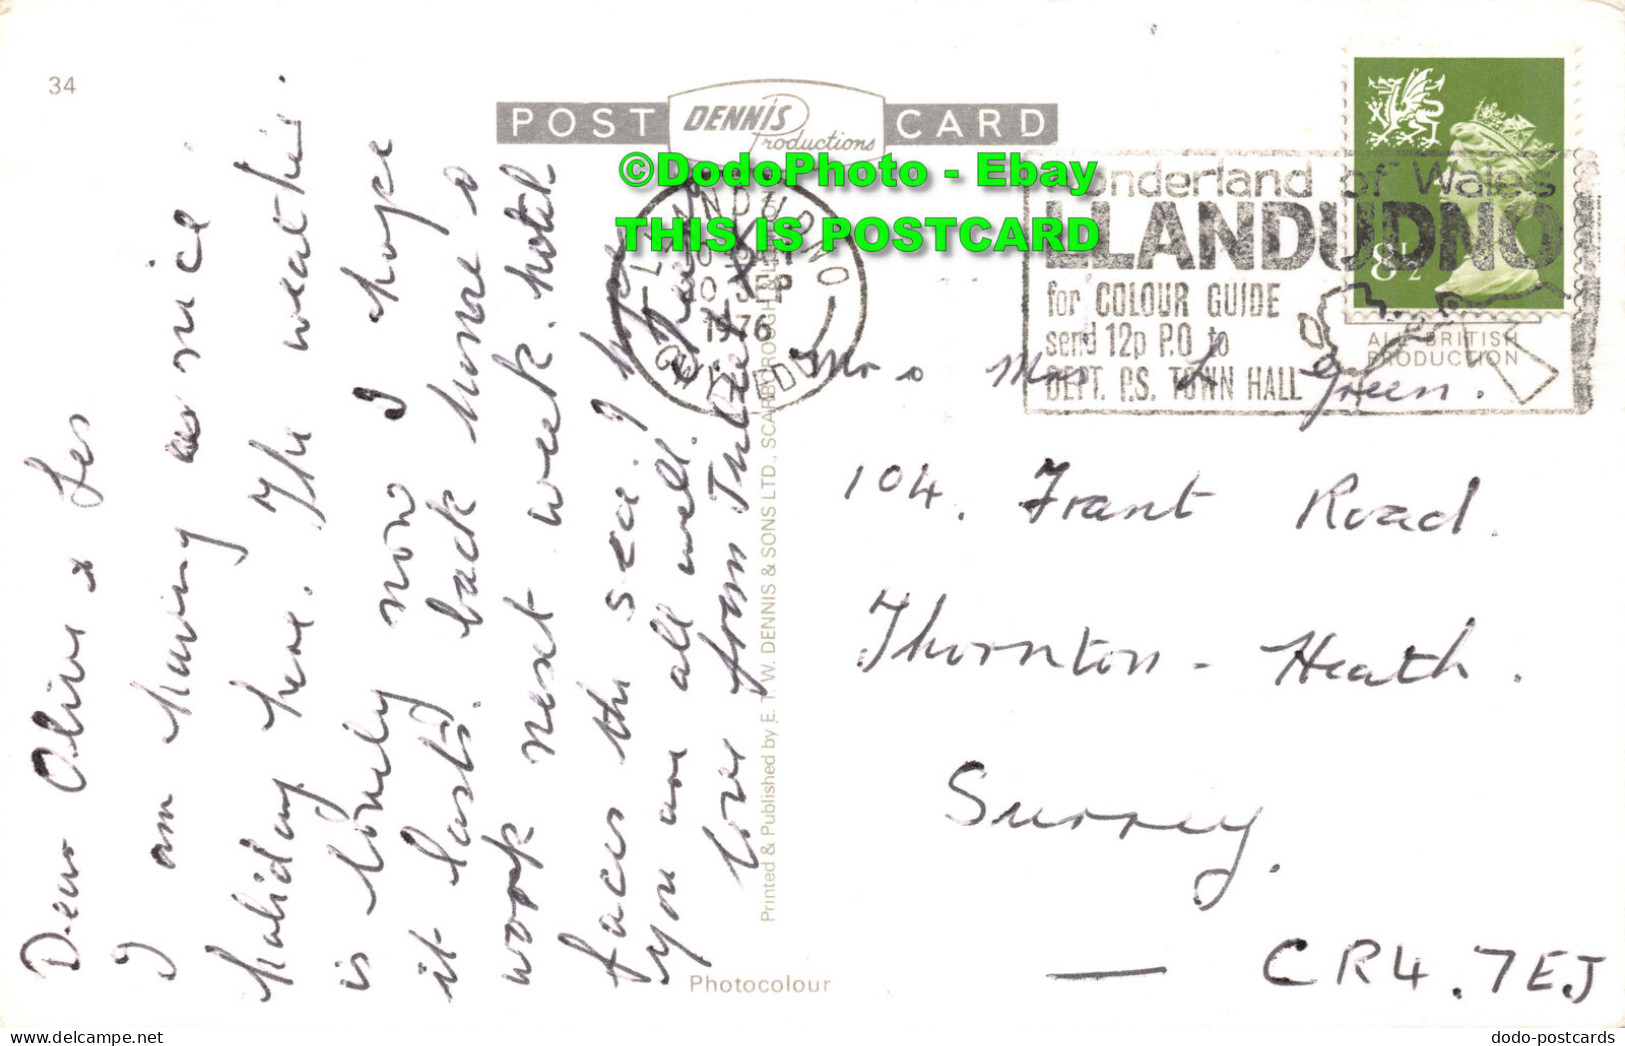 34
POST DENNIS Productions CARD
©DodoPhoto - Ebay
THIS IS POSTCARD
LLANDUDNO
1976
GWYNEDD
Wonderland of Wales
LLANDUDNO
for COLOUR GUIDE
send 12p P.O to
DEPT. P.S. TOWN HALL
8½
ALL BRITISH
PRODUCTION
Dear Olive & Les
I am having a nice
holiday here. The weather
is lovely now I hope
it lasts. back home &
work next week. hotel
faces the sea. I hope
you are all well.
love from
Printed & Published by E. T. W. DENNIS & SONS LTD., SCARBOROUGH
Mr & Mrs L Green.
104. Frant Road.
Thornton - Heath.
Surrey.
— CR4. 7EJ
Photocolour
dodo-postcards
delcampe.net